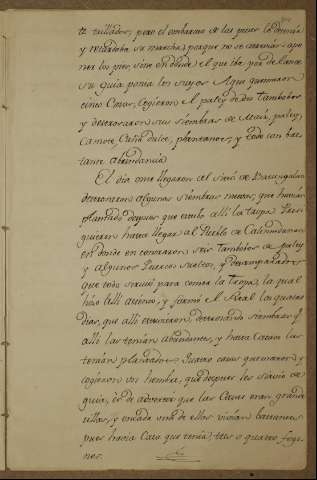 tallados, pero el embarazo de las puas lo
y retardaba su marcha, porque no se atrevian a po
ner los pies sino en donde el que iba por delante
su guia ponia los suyos. Aqui quemaron
cinco Casas, cogieron el paley de dos tambobos
y destrozaron sus siembras de Maiz, paley,
camote, Caña dulce, plantanos, y todo con bas
tante abundancia
El dia once llegaron al sitio de
destrozaron algunas siembras nuevas, que havian
plantado despues que estubo alli la tropa. Prosi
guieron hasta llegar al Pueblo de
en donde encontraron seis tambobos de paley
y algunos Puercos sueltos, y desamparados
que todo sirvió para comer la tropa; la qual
hizo alli asiento, y formó el Real los quatro
dias, que alli estuvieron, destrozando siembras q.
alli las tenian abundantes, y hasta Cacao las
tenian plantados. Quatro casas quemaron y
cogieron una hembra, que despues les sirvió de
guia, es de advertir que las Casas eran grande
cillas, y en cada una de ellas vivian bastantes
pues havia Casa que tenia tres o quatro fogo
nes.